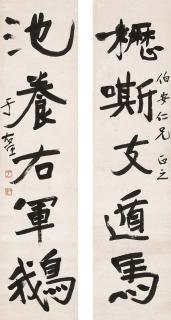 櫪嘶支遁馬
伯安仁兄 正之
池養右軍鵝
于右任